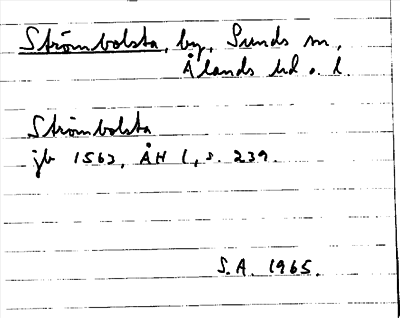 Strömbolsta, by, Sunds sn,
Ålands hd o. l.
Strömbolsta
jb 1563, ÅH 1, s. 239.
S.A. 1965.